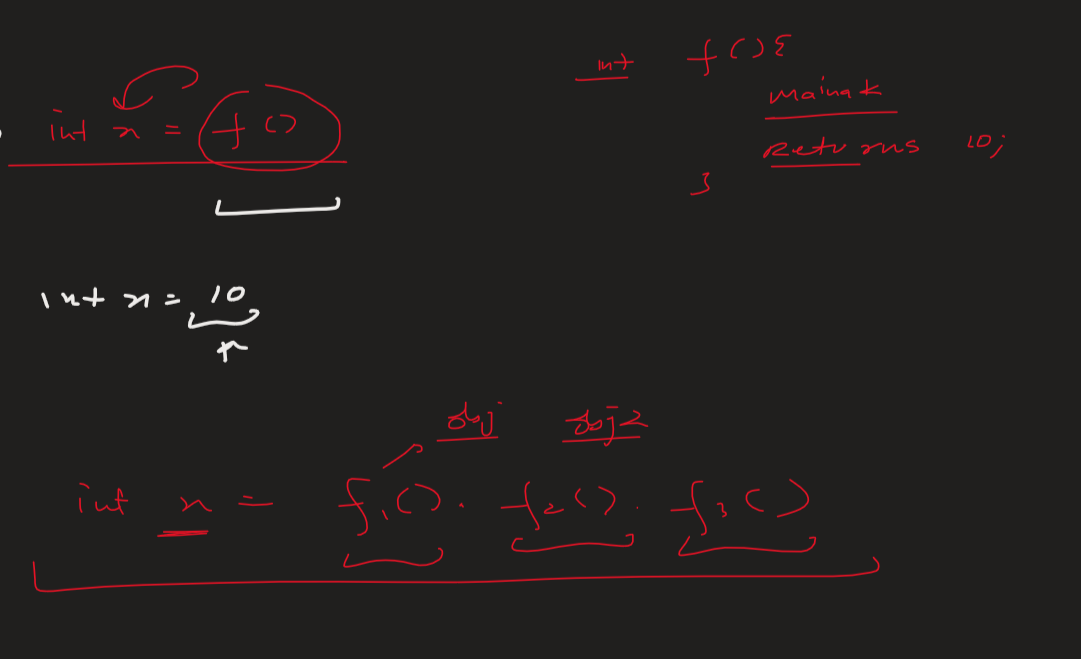 int x = f()
int f(){
Mainak
Returns 10;
}
int x = 10
obj obj2
int x = f1().f2().f3()